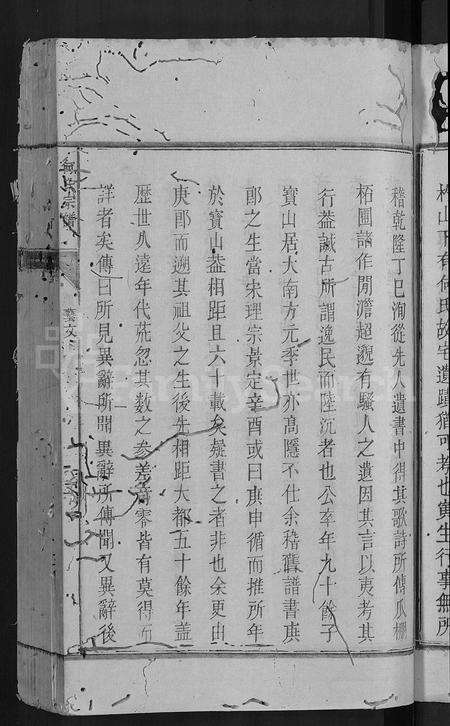 稽乾隆丁巳洵從先人遺書中得其歌詩所傳瓜棚
栢圃諸作閒澹超邈有騷人之遺因其言以夷考其
行益誠古所謂逸民而陸沉者也公卒年九十餘子
寶山居大南方元季世亦高隱不仕余稽舊譜書庚
郎之生當宋理宗景定辛酉或曰庚申循而推所年
於寶山益相距且六十載矣疑書之者非也余更由
庚郎而遡其祖父之生後先相距大都五十餘年蓋
歷世久遠年代茫忽其數之參差奇零皆有莫得而
詳者矣傳曰所見異辭所聞異辭所傳聞又異辭後
氏宗譜
藝文
山下有何氏故宅遺蹟猶可考也寅生行事無所
FamilySearch